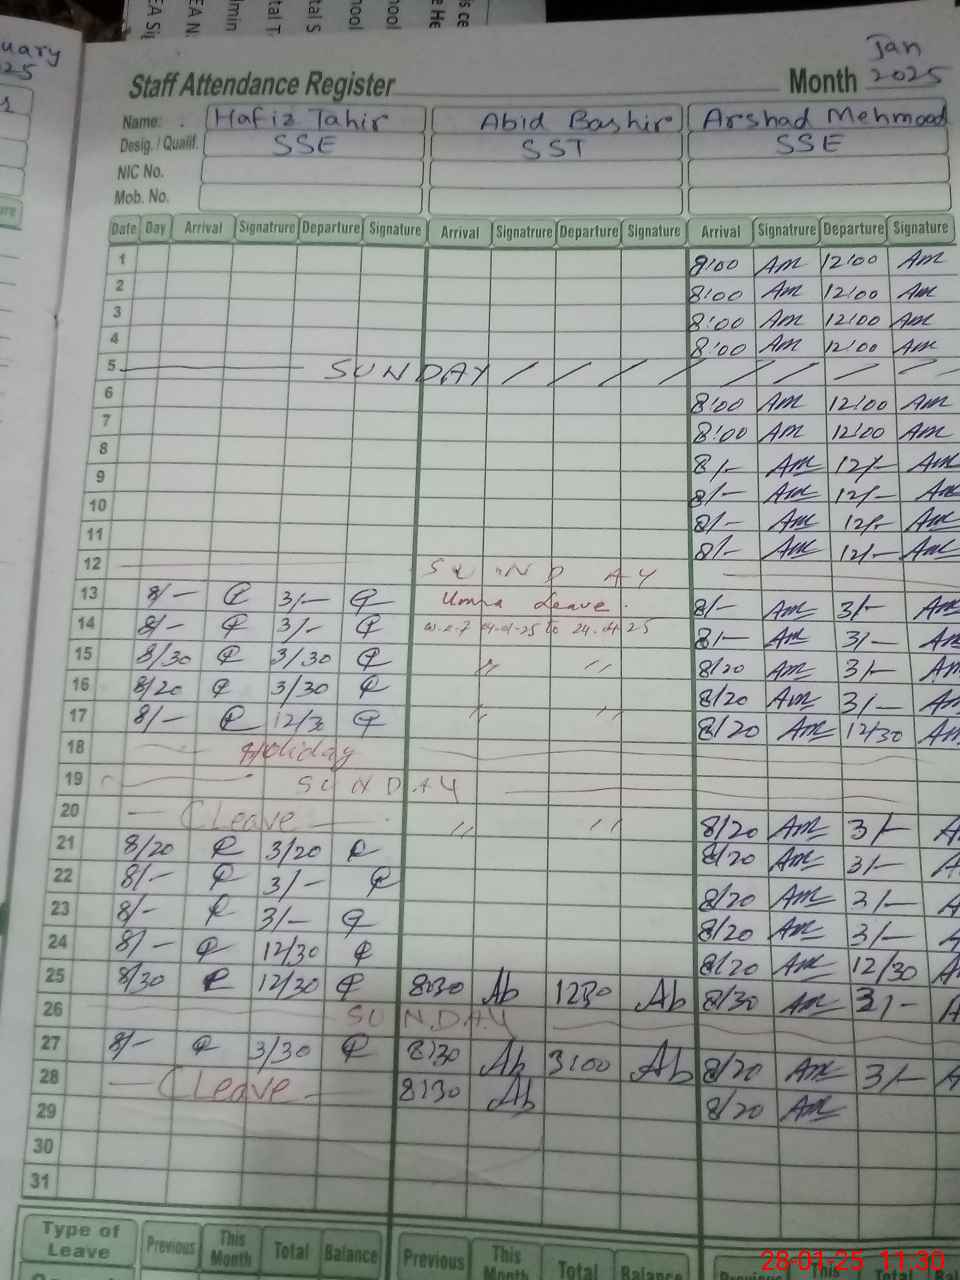 uary
25
EA Sig
EA N
dmin
tal T
tal S
hool
hool
e He
is ce
Jan
Staff Attendance Register Month 2025
Name: Hafiz Tahir Abid Bashir Arshad Mehmood
Desig. / Qualif. SSE SST SSE
NIC No.
Mob. No.
Date Day Arrival Signatrure Departure Signature Arrival Signatrure Departure Signature Arrival Signatrure Departure Signature
1 8:00 Am 12:00 Am
2 8:00 Am 12:00 Am
3 8:00 Am 12:00 Am
4 8:00 Am 12:00 Am
5 SUNDAY / / / / / / / /
6 8:00 Am 12:00 Am
7 8:00 Am 12:00 Am
8 8/- Am 12/- Am
9 8/- Am 12/- Am
10 8/- Am 12/- Am
11 8/- Am 12/- Am
12 SUNDAY
13 8/- 3/- Umra Leave. 8/- Am 3/- Am
14 8/- 3/- 8/- Am 3/- Am
15 8/30 3/30 " " 8/20 Am 3/- Am
16 8/20 3/30 8/20 Am 3/- Am
17 8/- 12/30 " " 8/20 Am 12/30 Am
18 Holiday
19 SUNDAY
20 - CLeave - " " 8/20 Am 3/- A
21 8/20 3/20 8/20 Am 3/- A
22 8/- 3/- 8/20 Am 3/- A
23 8/- 3/- 8/20 Am 3/- A
24 8/- 12/30 8/20 Am 12/30 A
25 8/30 12/30 8:30 Ab 1230 Ab 8/30 Am 3/- A
26 SUNDAY
27 8/- 3/30 8:30 Ab 3:00 Ab 8/20 Am 3/- A
28 - CLeave - 8:30 Ab 8/20 Am
29
30
31
Type of Leave Previous This Month Total Balance Previous This Month Total Balance Previous This Total Bal
28-01-25 11:30